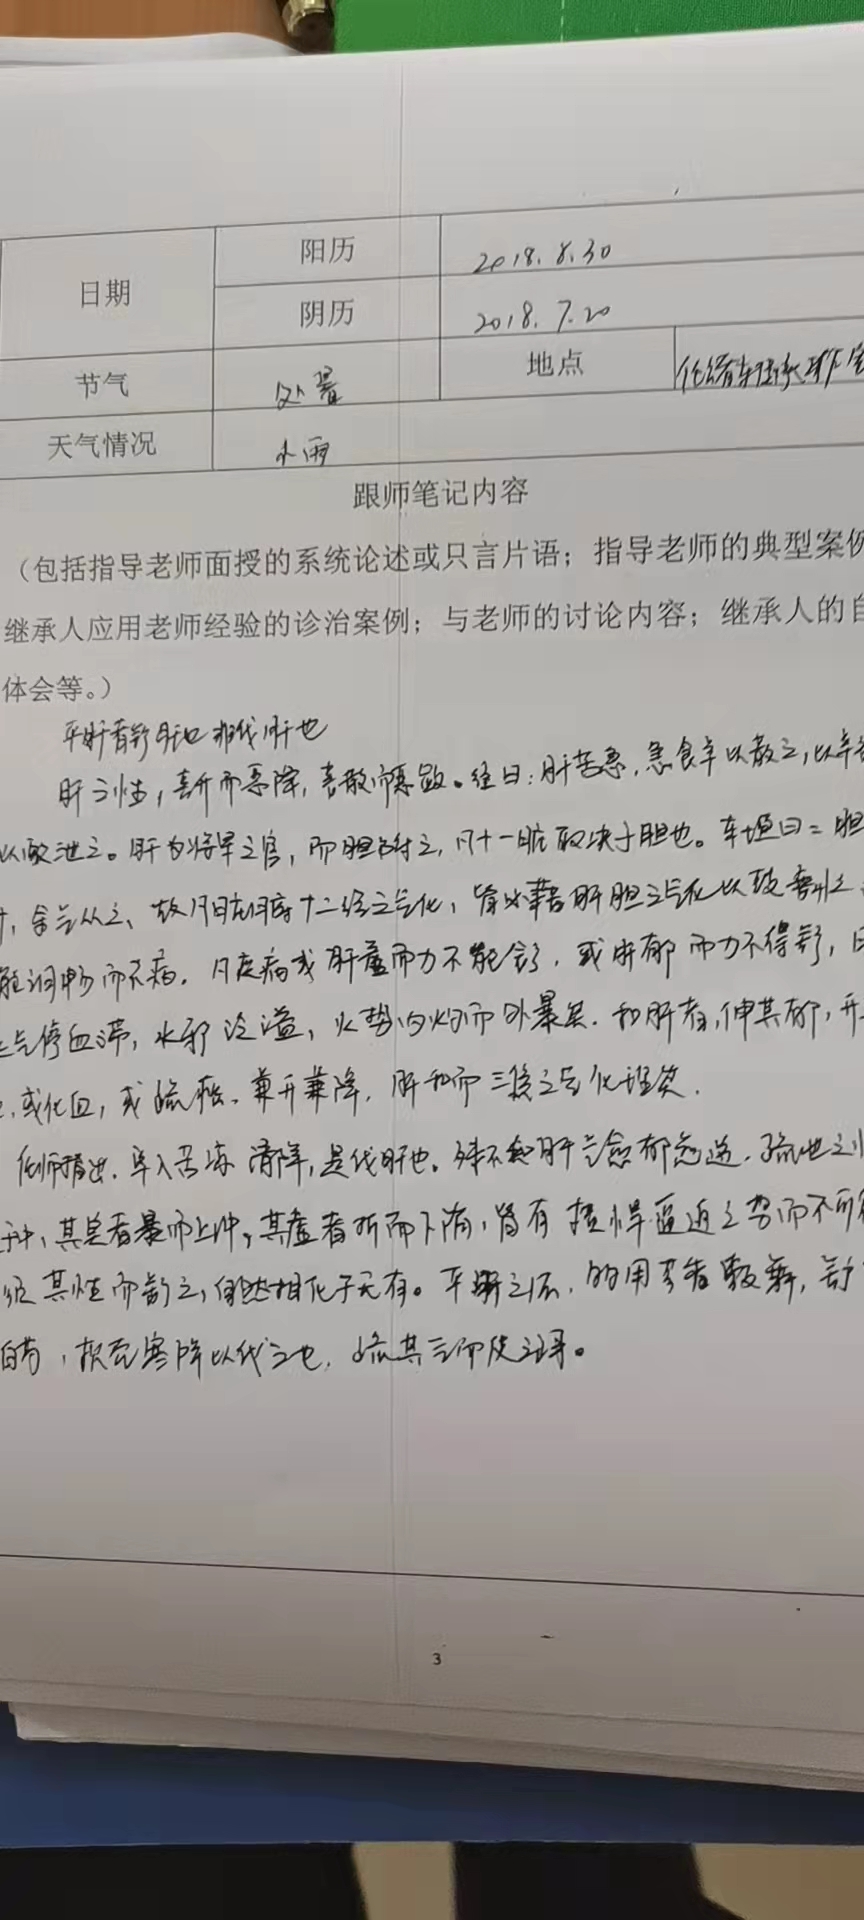 日期 阳历 2018.8.30
阴历 2018.7.20
节气 处暑 地点
天气情况 小雨
跟师笔记内容
（包括指导老师面授的系统论述或只言片语；指导老师的典型案例
继承人应用老师经验的诊治案例；与老师的讨论内容；继承人的自
体会等。）
平肝者舒肝也非伐肝也
肝之性，喜升而恶降，喜散而恶敛。经曰：肝苦急，急食辛以散之，以辛
以酸泄之。肝为将军之官，而胆附之，凡十一脏取决于胆也。东垣曰：胆
余气从之、故凡脏腑十二经之气化，皆必藉肝胆之气化以鼓舞之
能调畅而不病。凡疾病或肝虚而力不能舒，或肝郁而力不得舒，日
气停血滞，水邪泛溢，火势内灼而外暴矣．和肝者，伸其郁，开
或化血，或疏经、兼升兼降，肝和而三焦之气化理矣．
师指出．单入苦海清降，是伐肝也。殊不知肝气愈郁愈逆．疏泄之
其实者暴而上冲，其虚者折而下陷，皆有横悍逼迫之势而不可
须其性而舒之，自然相化于无有。平肝之法，的用
白芍，抗寒降以伐之也，
3